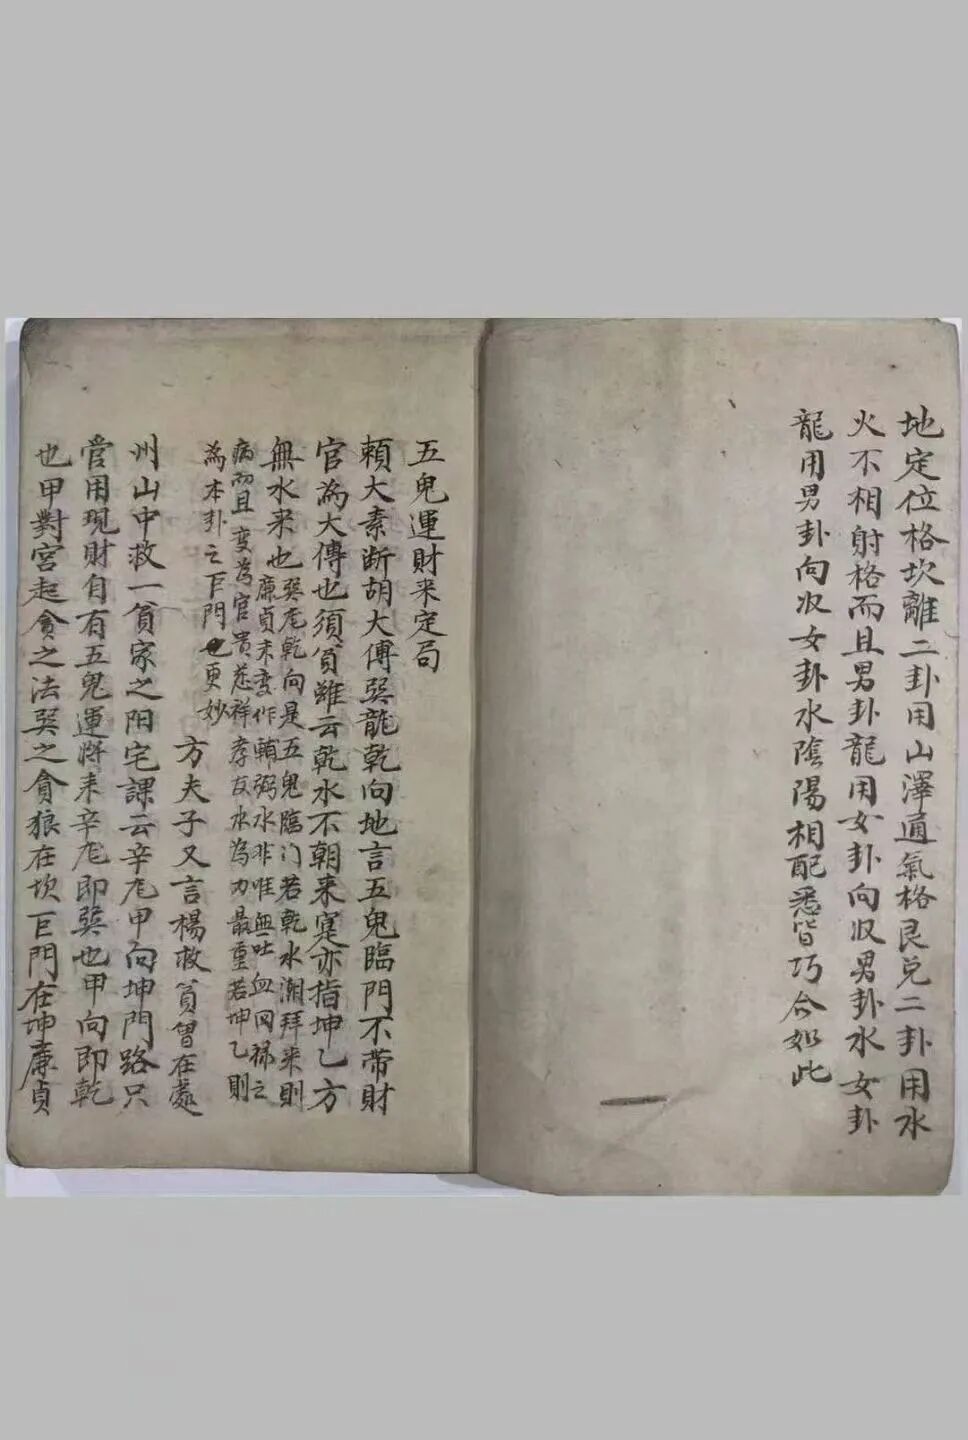 地定位格坎離二卦用山澤通氣格艮兌二卦用水
火不相射格而且男卦龍用女卦向収男卦水女卦
龍用男卦向収女卦水陰陽相配悉皆巧合如此
五鬼運財来定局
賴大素断胡大傅巽龍乾向地言五鬼臨門不帶財
官為大傅也須貧雖云乾水不朝来寔亦指坤乙方
無水来也
巽龙乾向是五鬼臨门若乾水潮拜来則
廉貞未变作輔弼水非唯無吐血回禄之
病而且变為官贵慈祥孝友水為力最重若坤乙則
為本卦之巨門也更妙
方夫子又言楊救貧曾在處
州山中救一貧家之阳宅課云辛龙甲向坤門路只
管用現財自有五鬼運将来辛龙即巽也甲向即乾
也甲對宮起貪之法巽之貪狼在坎巨門在坤廉貞